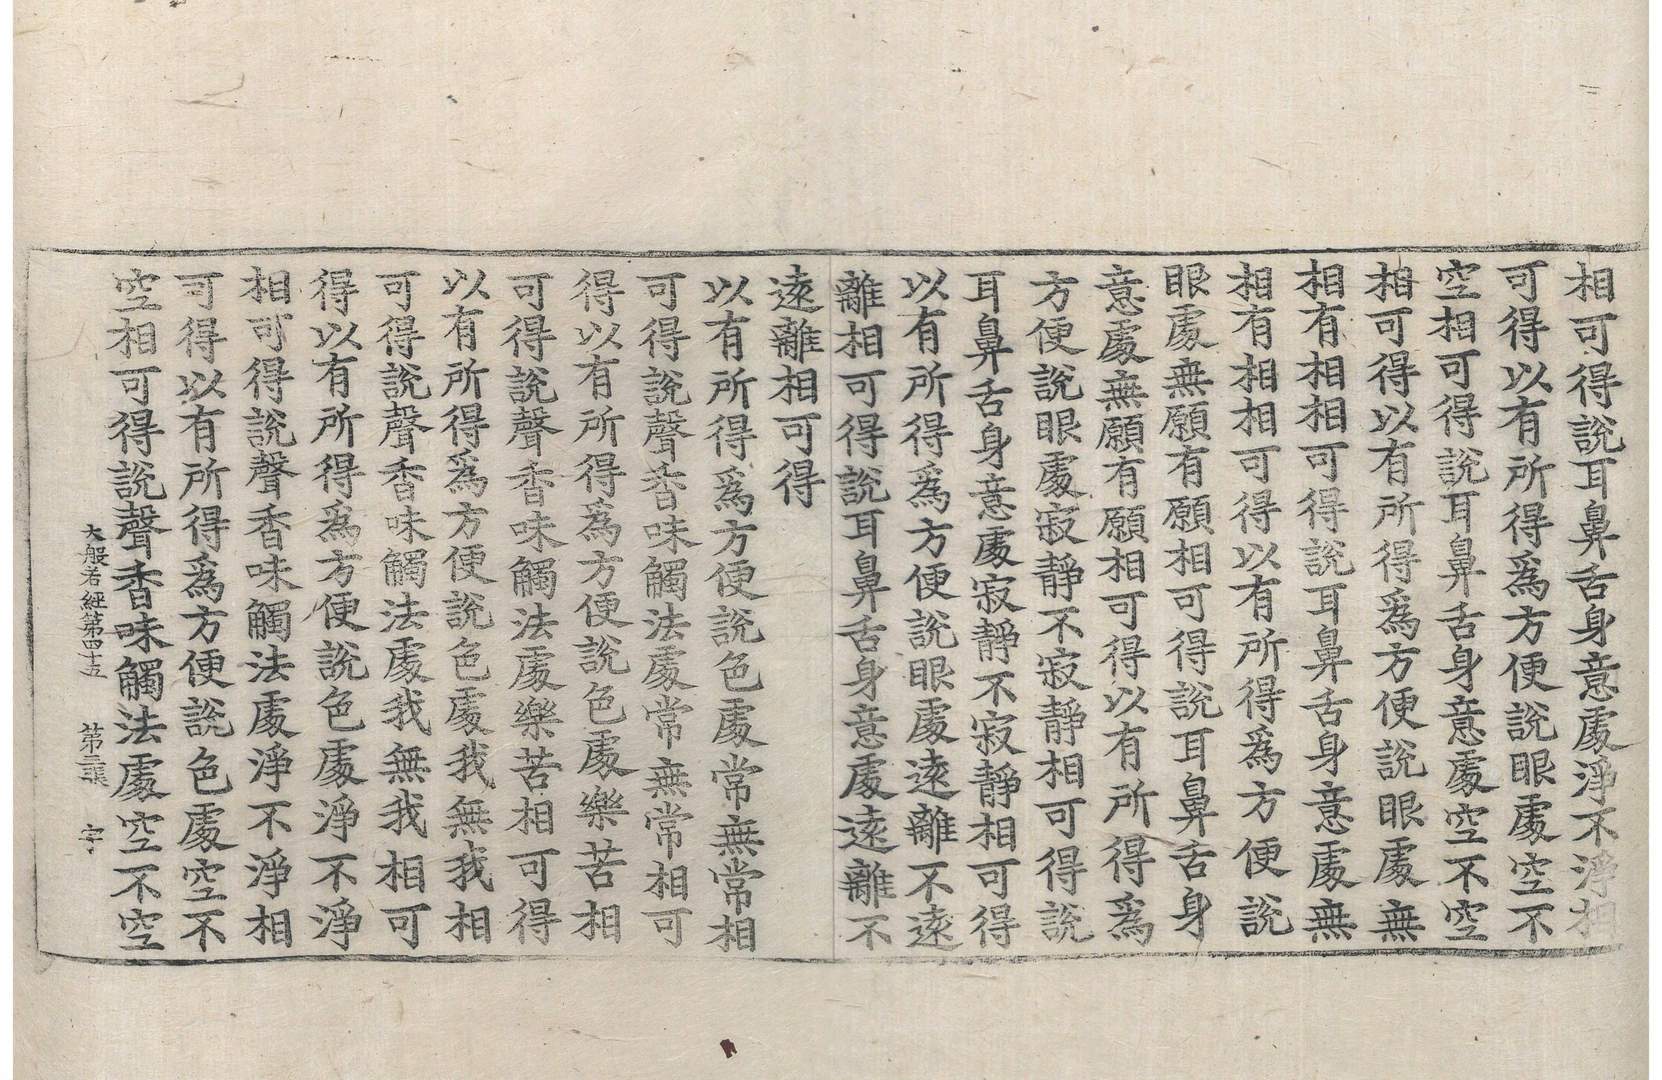 相可得說耳鼻舌身意處淨不淨相
可得以有所得爲方便說眼處空不
空相可得說耳鼻舌身意處空不空
相可得以有所得爲方便說眼處無
相有相相可得說耳鼻舌身意處無
相有相相可得以有所得爲方便說
眼處無願有願相可得說耳鼻舌身
意處無願有願相可得以有所得爲
方便說眼處寂靜不寂靜相可得說
耳鼻舌身意處寂靜不寂靜相可得
以有所得爲方便說眼處遠離不遠
離相可得說耳鼻舌身意處遠離不
遠離相可得
以有所得爲方便說色處常無常相
可得說聲香味觸法處常無常相可
得以有所得爲方便說色處樂苦相
可得說聲香味觸法處樂苦相可得
以有所得爲方便說色處我無我相
可得說聲香味觸法處我無我相可
得以有所得爲方便說色處淨不淨
相可得說聲香味觸法處淨不淨相
可得以有所得爲方便說色處空不
空相可得說聲香味觸法處空不空
大般若經第四十五 第三張 宇